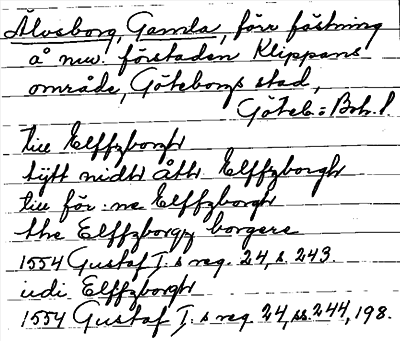 Älvsborg, Gamla, förr fästning
å nuv. förstaden Klippans
område, Göteborgs stad,
Göteb. o Boh. l.
till Elffzborgh
tytt midtt åtth Elffzborgh
till för:ne Elffzborgh
the Elffzborgz borgere
1554 Gustaf I:s reg. 24, s. 243.
udi Elffzborgh
1554 Gustaf I:s reg. 24, ss. 244, 198.